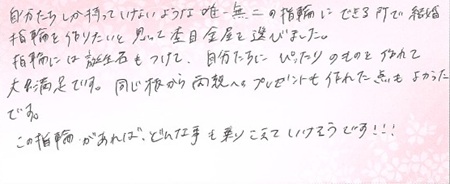 自分たちしか持っていけないような唯一無二の指輪にできる所で結婚
指輪を作りたいと思って杢目金屋を選びました。
指輪には誕生石もつけて、自分たちにぴったりのものを作れて
大満足です。同じ板から両親へのプレゼントも作れた点もよかった
です。
この指輪があれば、どんな事も乗りこえていけそうです!!!